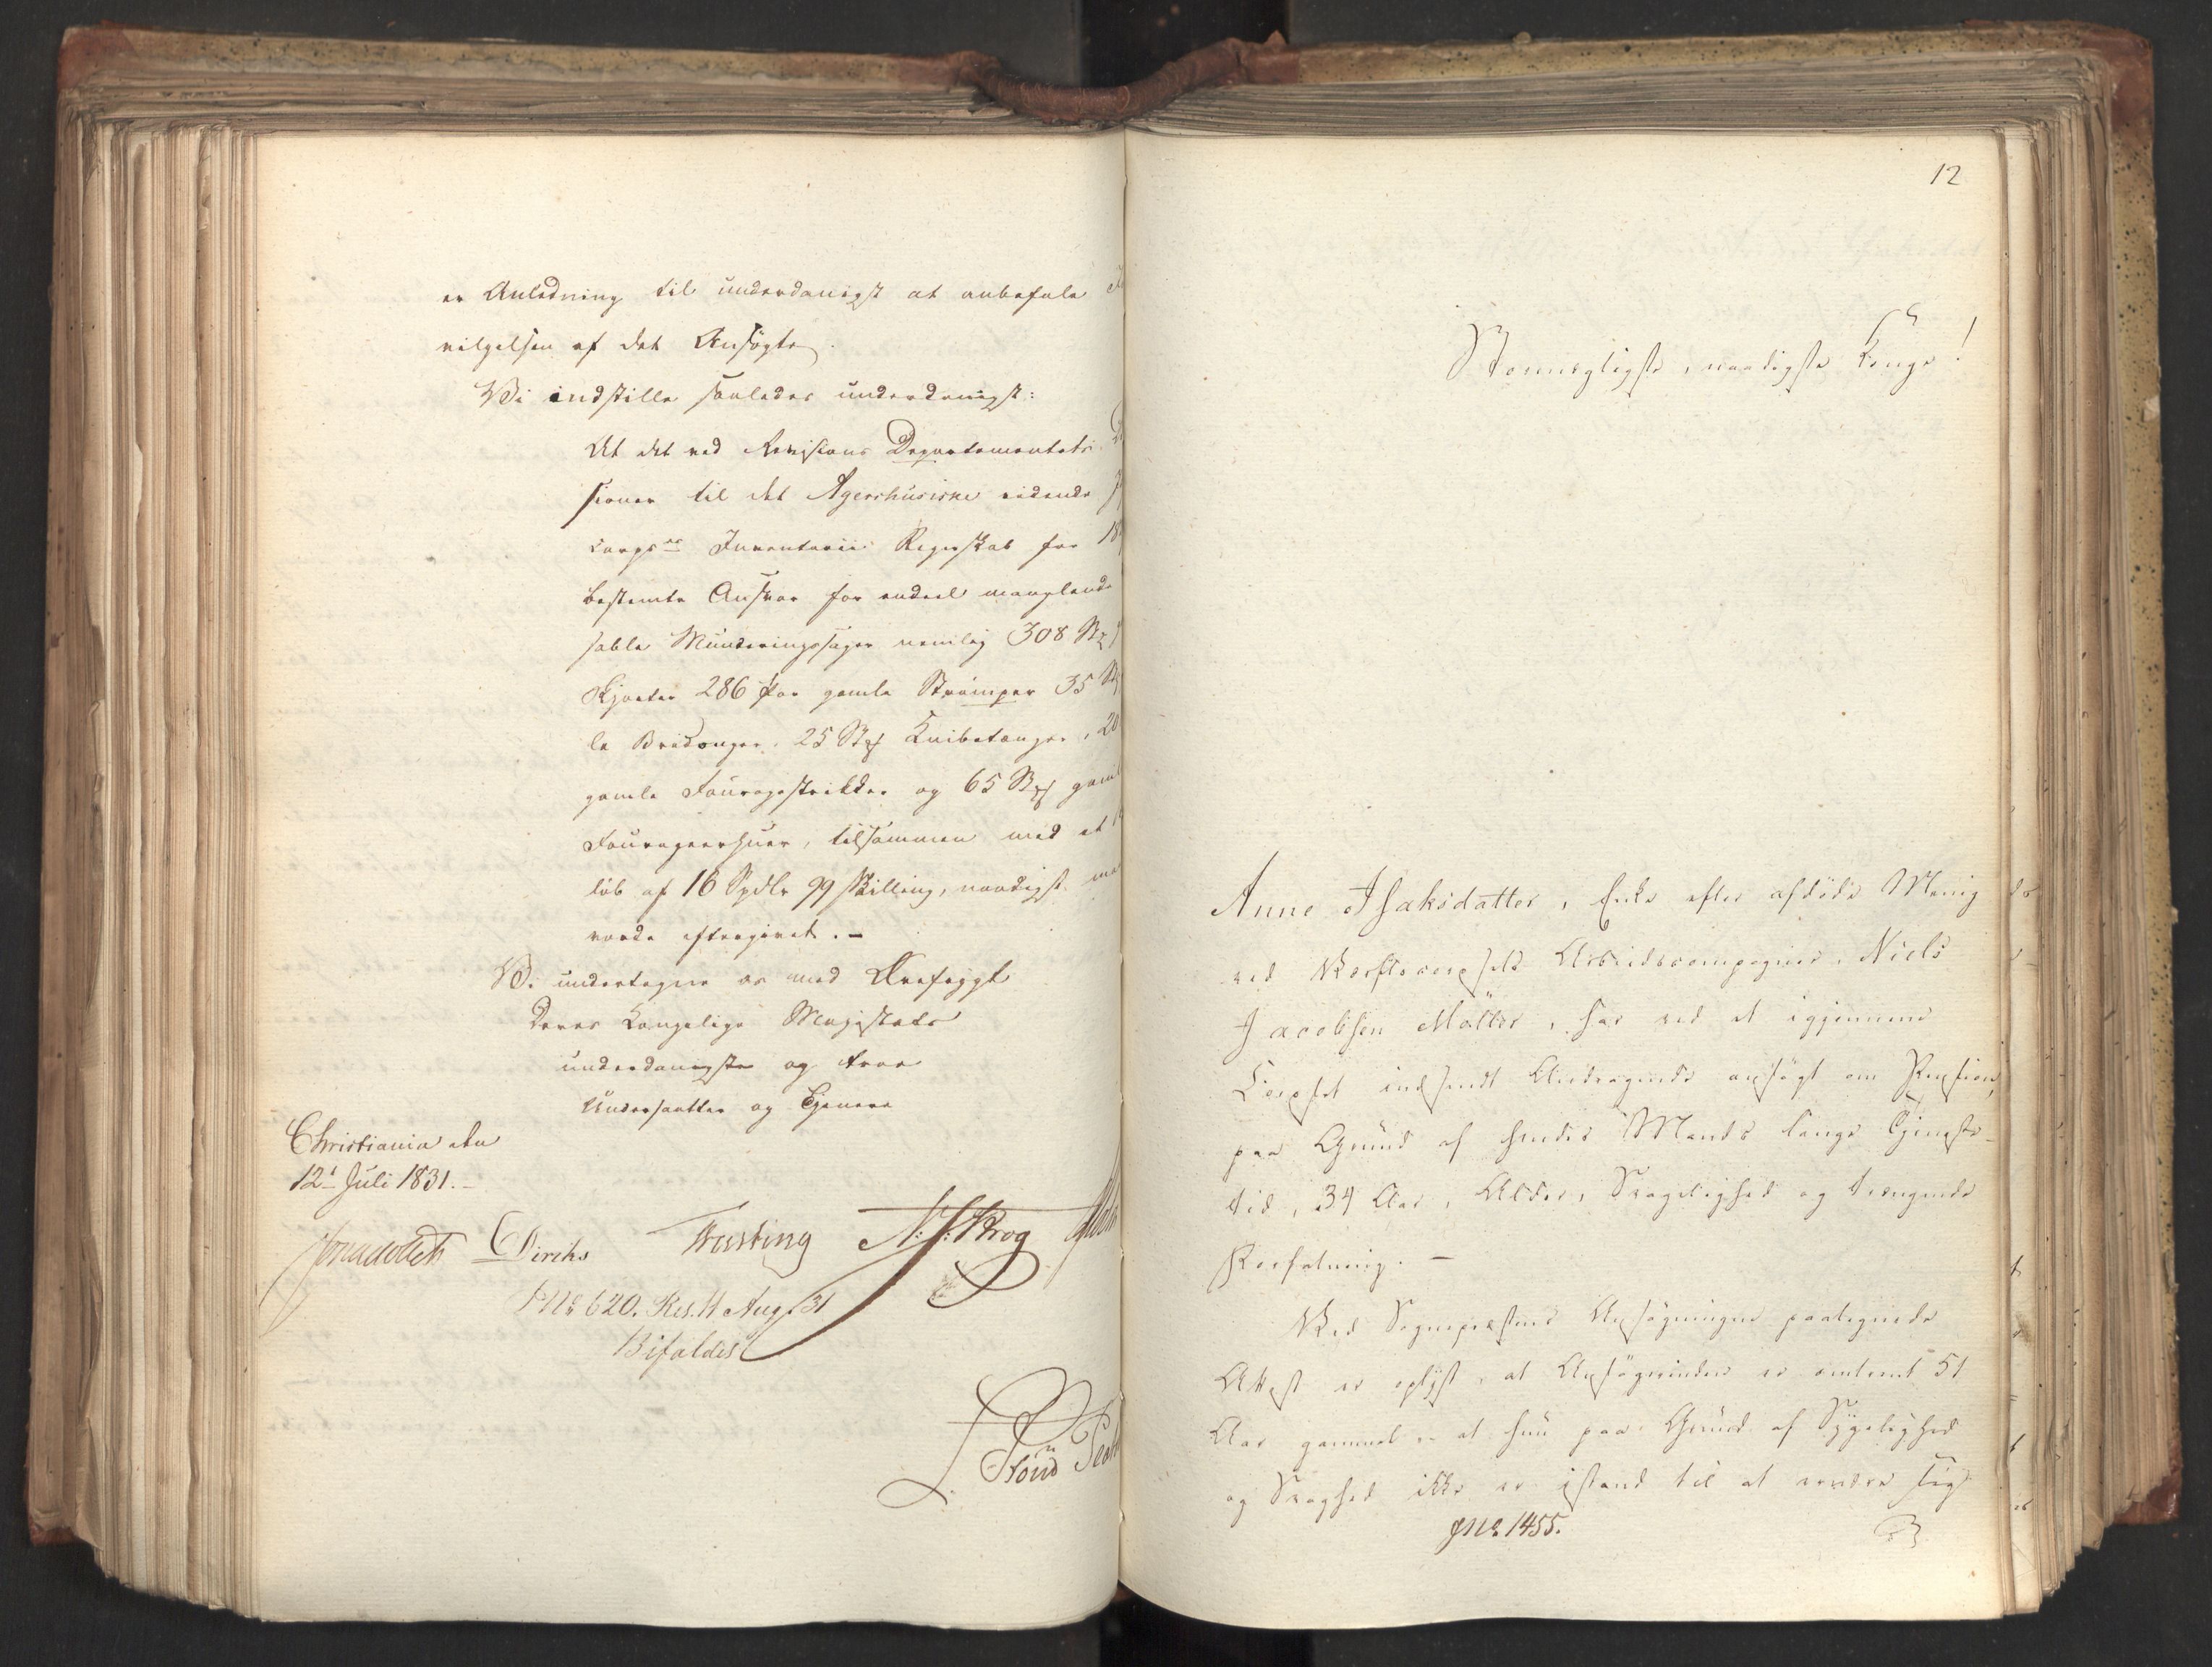 er Anledning til underdanigst at anbefale
vilgelsen af det Ansøgte.
Vi indstille saaledes underdanigst:
At det ved Revisions Departementets
sioner til det Agershusiske ridende
Corpses Inventarii Regnskab for 18
bestemte Ansvar for endeel manglende
sable Munderingssager nemlig 308 Stk
Skjorter 286 Par gamle Strømper 35 Stk
le Bridonger, 25 Stk Knibetænger, 20
gamle Fouragestrikker og 65 Stk gaml
Fourageerhuer, tilsammen med et
løb af 16 Spdlr 99 Skilling, naadigst maa
vorde eftergivet. –
Vi undertegne os med Ærefrygt
Deres Kongelige Majestæts
underdanigste og troe
Undersaatter og Tjenere
Christiania den
12te Juli 1831. –
Diriks Fasting N. J. Krog
PNo 620. Res. 11 Aug. 31
Bifaldes
12
Stormægtigste, naadigste Konge!
Anne Isaksdatter, Enke efter afdøde Menig
ved Værftscorpsets Arbeidscompagnie, Niels
Jacobsen Møller, har ved et igjennem
Corpset indsendt Andragende ansøgt om Pension,
paa Grund af hendes Mands lange Tjeneste-
tid, 34 Aar, Alder, Svagelighed og trængende
Forfatning. –
Ved Sognepræstens Ansøgningen paategnede
Attest er oplyst, at Ansøgerinden er omtrent 51
Aar gammel og at hun paa Grund af Sygelighed
og Svaghed ikke er istand til at ernære sig
JNo. 1455.